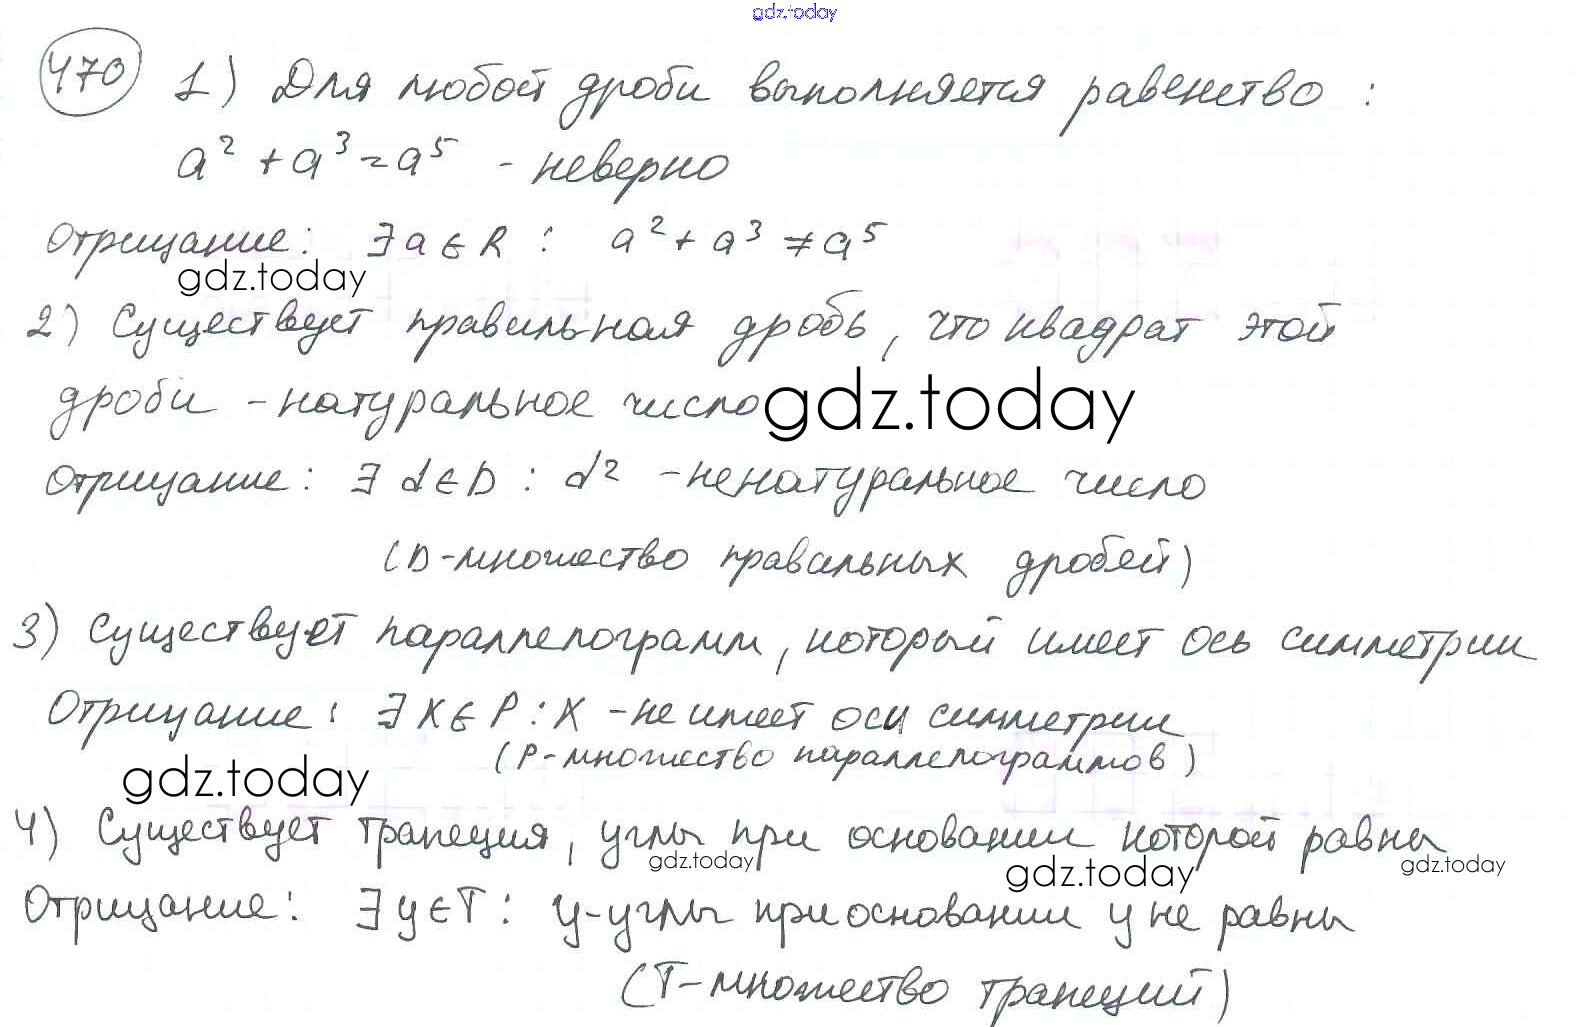 gdz.today
470 1) Для любой дроби выполняется равенство :
a² + a³ = a⁵ - неверно
Отрицание: ∃ a ∈ R : a² + a³ ≠ a⁵
gdz.today
2) Существует правильная дробь, что квадрат этой
дроби - натуральное число
gdz.today
Отрицание: ∃ d ∈ D : d² - ненатуральное число
(D - множество правильных дробей)
3) Существует параллелограмм, который имеет ось симметрии
Отрицание: ∃ X ∈ P : X - не имеет оси симметрии
(P - множество параллелограммов)
gdz.today
4) Существует трапеция, углы при основании которой равны
gdz.today gdz.today gdz.today
Отрицание: ∃ y ∈ T : y - углы при основании y не равны
(T - множество трапеций)